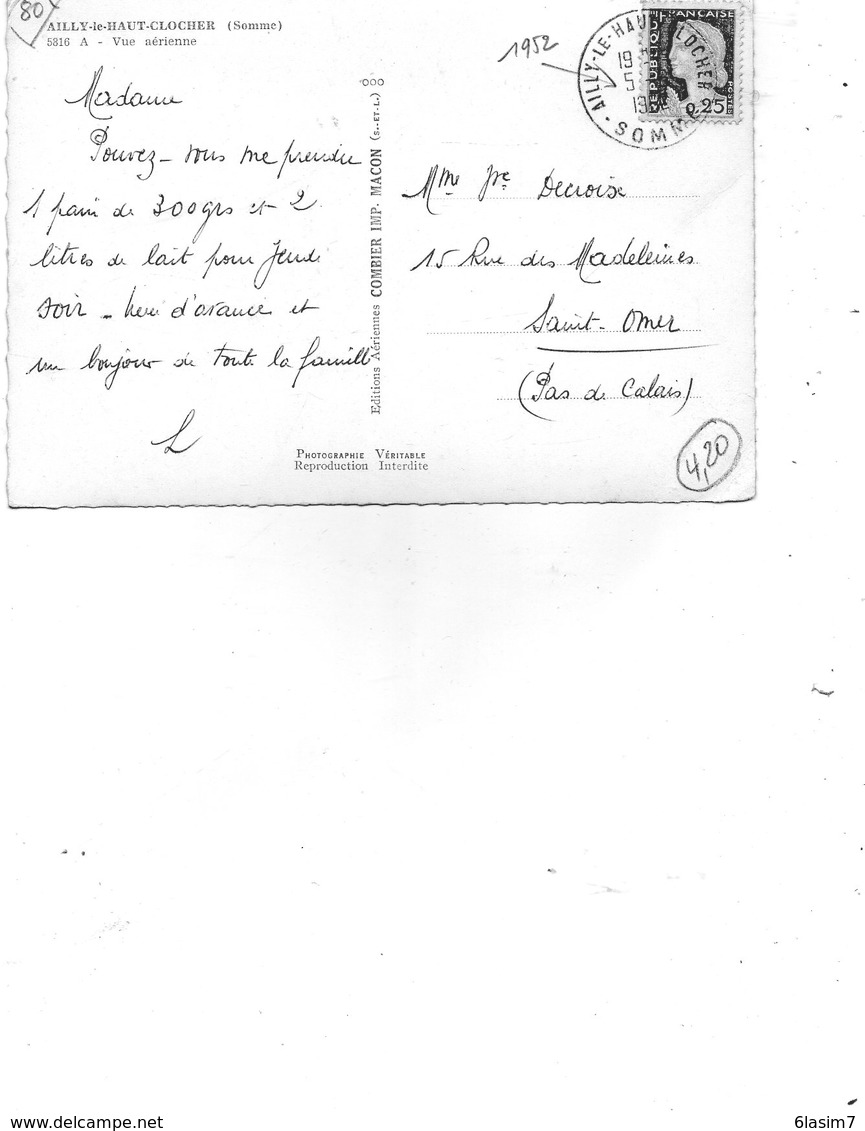 80
AILLY-le-HAUT-CLOCHER (Somme)
5816 A - Vue aérienne
Madame
Pouvez-vous me prendre
1 pain de 300grs et 2
litres de lait pour Jeudi
soir - d'avance et
un bonjour de toute la famille
L
Editions Aériennes COMBIER IMP. MACON (S.-ET-L.) °OOO
PHOTOGRAPHIE VÉRITABLE
Reproduction Interdite
1952
AILLY-LE-HAUT CLOCHER
19
5
19
SOMME
REPUBLIQUE FRANÇAISE
0,25
POSTES
Mme Decroise
15 Rue des Madeleines
Saint-Omer
(Pas de Calais)
4,20
delcampe.net
6lasim7